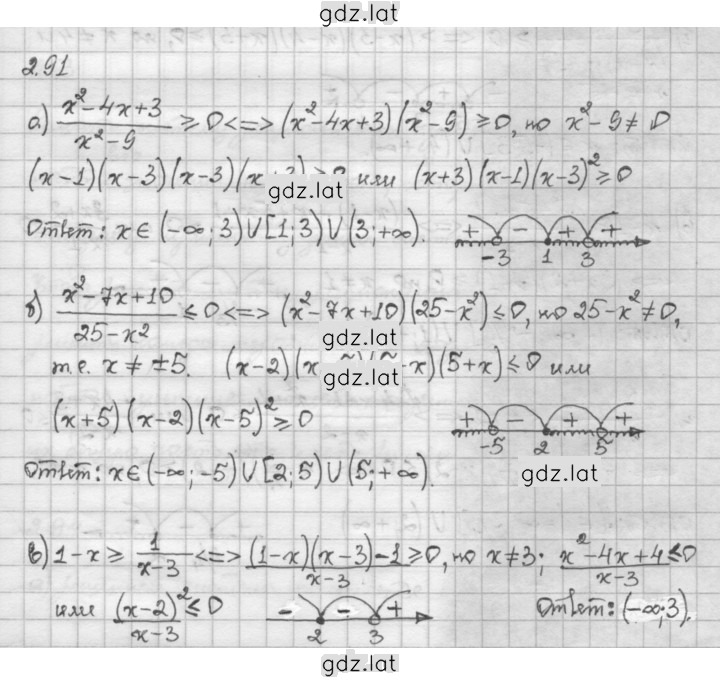 gdz.lat
2.91
а) (x²-4x+3)/(x²-9) ≥ 0 <=> (x²-4x+3)(x²-9) ≥ 0, но x²-9 ≠ 0
(x-1)(x-3)(x-3)(x ≥ 0 или (x+3)(x-1)(x-3)² ≥ 0
gdz.lat
Ответ: x ∈ (-∞; 3) ∪ [1; 3) ∪ (3; +∞).
+ - + +
-3 1 3
б) (x²-7x+10)/(25-x²) ≤ 0 <=> (x²-7x+10)(25-x²) ≤ 0, но 25-x² ≠ 0,
gdz.lat
т.е. x ≠ ±5. (x-2)(x -x)(5+x) ≤ 0 или
gdz.lat
(x+5)(x-2)(x-5)² ≥ 0
+ - + +
-5 2 5
Ответ: x ∈ (-∞; -5) ∪ [2; 5) ∪ (5; +∞).
gdz.lat
в) 1-x ≥ 1/(x-3) <=> ((1-x)(x-3)-1)/(x-3) ≥ 0, но x ≠ 3; (x²-4x+4)/(x-3) ≤ 0
или (x-2)²/(x-3) ≤ 0
- - +
2 3
Ответ: (-∞; 3).
gdz.lat